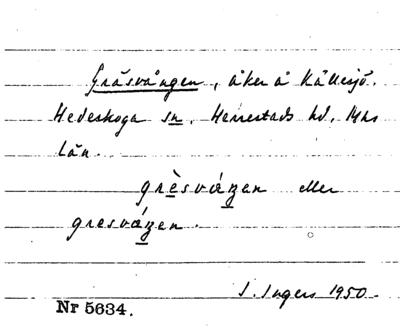 Gräsvången, åker å Källesjö.
Hedeskoga sn. Herrestads hd, Mhs
län.
grèsváŋen eller
gresváŋen.
I. Ingers 1950.
Nr 5634.